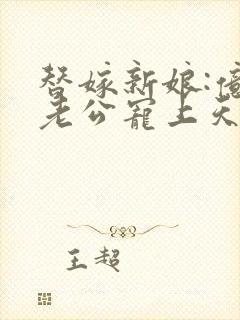 替嫁新娘:亿
老公宠上天
王超